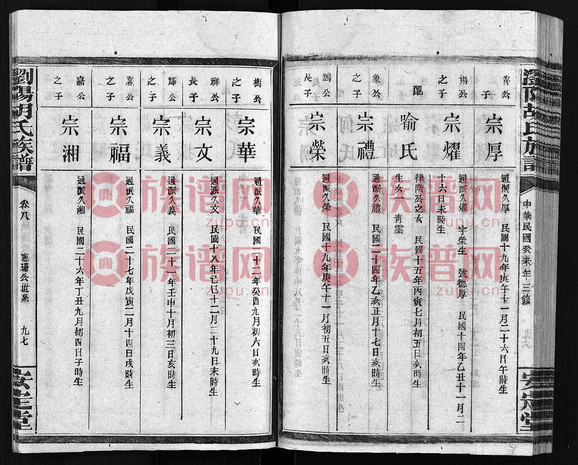 瀏陽胡氏族譜
中華民國癸未年三修
安定堂
之子
宗厚
通派久厚 民國十九年庚午十一月二十六日午時生
之子
宗耀
通派久耀 字榮生 號德厚 民國十四年乙丑十一月二
十六日未時生
配
喻氏
民國十五年丙寅七月初八日亥時生
生女一 青雲
象公
之子
宗禮
通派久禮 民國二十四年乙亥正月十七日亥時生
長子
宗榮
通派久榮 民國十九年庚午十一月初五日亥時生
樹公
之子
宗華
通派久華 民國二十二年癸酉九月初六日亥時生
長子
宗文
通派久文 民國十八年己巳十二月二十九日未時生
輝公
之子
宗義
通派久義 民國二十一年壬申十月初三日亥時生
嘉公
之子
宗福
通派久福 民國二十七年戊寅二月十四日戌時生
嘉公
之子
宗湘
通派久湘 民國二十六年丁丑九月初四日子時生
瀏陽胡氏族譜
卷八
公世系
九七
安定堂
族谱网
zupu.cn